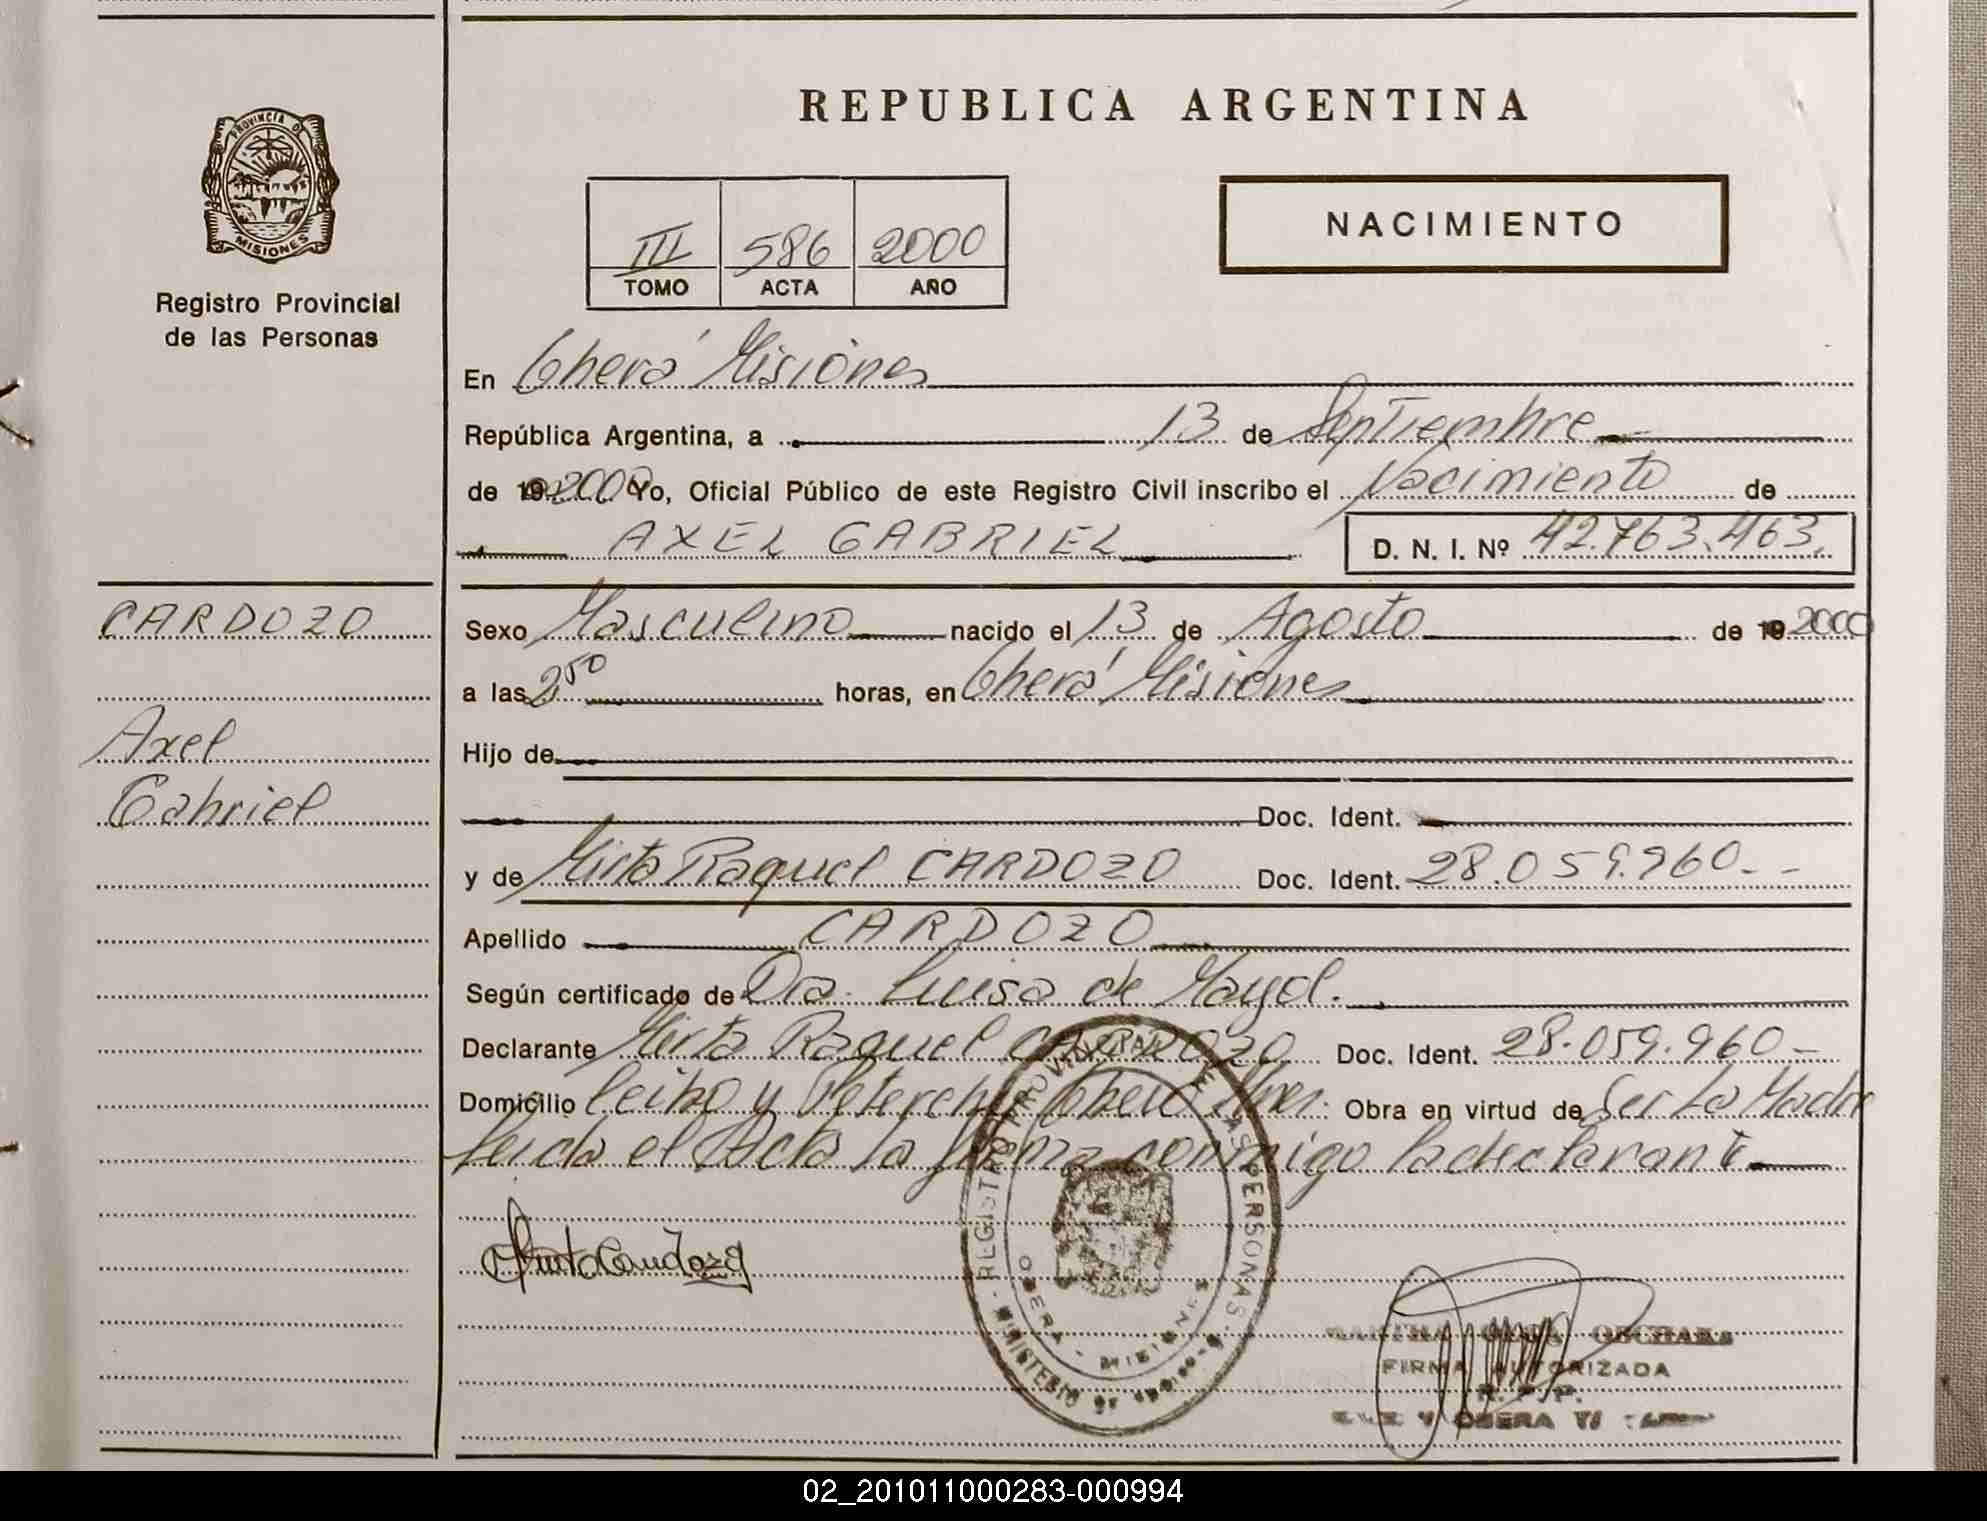 REPUBLICA ARGENTINA
PROVINCIA DE
MISIONES
Registro Provincial
de las Personas
III 586 2000
TOMO ACTA AÑO
NACIMIENTO
En Oberá Misiones
República Argentina, a 13 de Septiembre
de 19 2000 Yo, Oficial Público de este Registro Civil inscribo el Nacimiento de
AXEL GABRIEL D. N. I. Nº 42.763.463.
CARDOZO
Axel
Gabriel
Sexo Masculino nacido el 13 de Agosto de 19 2000
a las 2⁵⁰ horas, en Oberá Misiones
Hijo de
Doc. Ident.
y de Mirta Raquel CARDOZO Doc. Ident. 28.059.960--
Apellido CARDOZO
Según certificado de Dra. Luisa de Mayol.
Declarante Mirta Raquel CARDOZO Doc. Ident. 28.059.960-
Domicilio Ceibo y Oberá Mnes. Obra en virtud de Ser La Madre
Leida el Acta la firma conmigo la declarante
Mirta Cardozo
REGISTRO PROVINCIAL DE LAS PERSONAS
MINISTERIO DE
OBERA - MISIONES
FIRMA AUTORIZADA
R. P. P.
OBERA
02_201011000283-000994